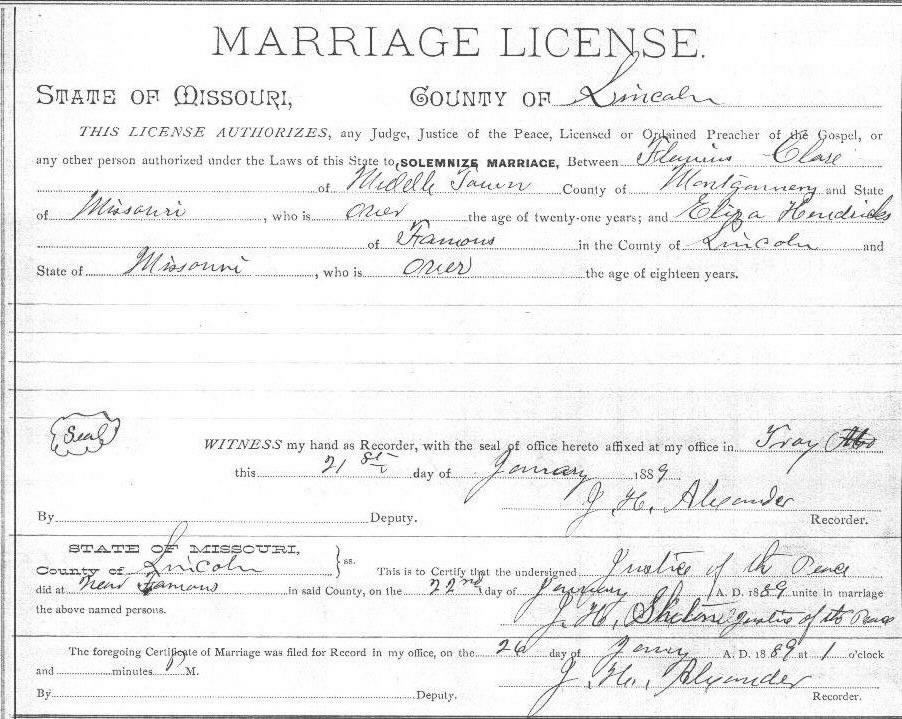 MARRIAGE LICENSE.
STATE OF MISSOURI, COUNTY OF Lincoln
THIS LICENSE AUTHORIZES, any Judge, Justice of the Peace, Licensed or Ordained Preacher of the Gospel, or
any other person authorized under the Laws of this State to SOLEMNIZE MARRIAGE, Between Flavius Clare
of Middle Town County of Montgomery and State
of Missouri, who is over the age of twenty-one years; and Eliza Hendricks
of Famous in the County of Lincoln and
State of Missouri, who is over the age of eighteen years.
Seal
WITNESS my hand as Recorder, with the seal of office hereto affixed at my office in Troy Mo
this 21st day of January 1889
J. H. Alexander
By Deputy. Recorder.
STATE OF MISSOURI,
County of Lincoln } ss. This is to Certify that the undersigned Justice of the Peace
did at near Famous in said County, on the 22nd day of January A. D. 1889 unite in marriage
the above named persons. J. H. justice of the Peace
The foregoing Certificate of Marriage was filed for Record in my office, on the 26 day of Jany A. D. 1889 at 1 o'clock
and minutes P M. J. H. Alexander
By Deputy. Recorder.